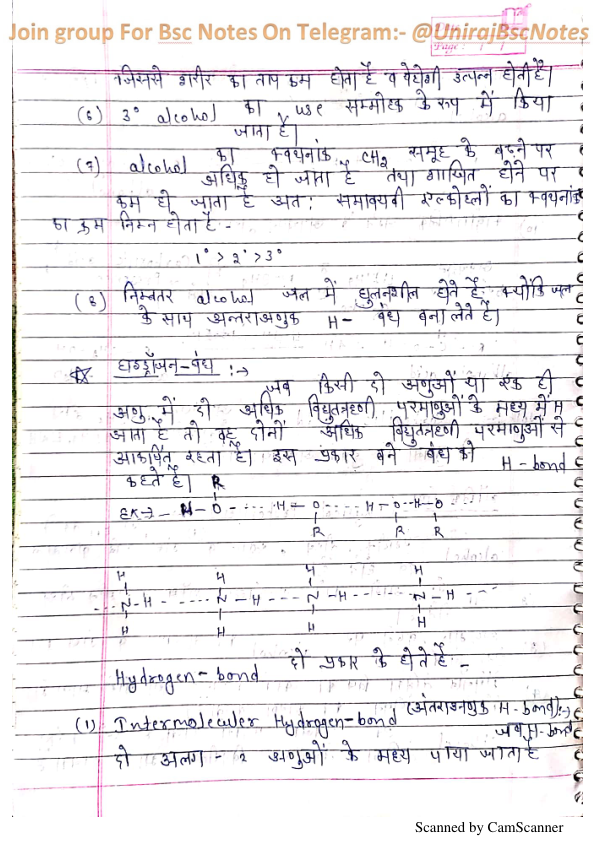 Join group For Bsc Notes On Telegram:- @UnirajBscNotes
Page:
जिससे शरीर का ताप कम होता है व बेहोशी उत्पन्न होती है।
(6) 3° alcohol का use सम्मोहक के रूप में किया
जाता है।
(7) alcohol का क्वथनांक CH2 समूह के बढ़ने पर
अधिक हो जाता है तथा शाखित होने पर
कम हो जाता है अत: समावयवी एल्कोहलों का क्वथनांक
का क्रम निम्न होता है -
1° > 2° > 3°
(8) निम्नतर alcohol जल में घुलनशील होते हैं क्योंकि जल
के साथ अन्तराअणुक H- बंध बना लेते हैं।
हाइड्रोजन-बंध :→
जब किसी दो अणुओं या एक ही
अणु में दो अधिक विद्युतऋणी परमाणुओं के मध्य में H
आता है तो वह दोनों अधिक विद्युतऋणी परमाणुओं से
आकर्षित रहता है। इस प्रकार बने बंध को H-bond
कहते हैं।
R
Ex→ H-O ---- H-O ---- H-O -- H-O
R R R
H H H H
--- N-H ---- N-H ---- N-H ---- N-H ---
H H H H
Hydrogen-bond दो प्रकार के होते है -
(1) Intermoleculer Hydrogen-bond (अंतराअणुक H-bond):→
जब H-bond
दो अलग-2 अणुओं के मध्य पाया जाता है
Scanned by CamScanner